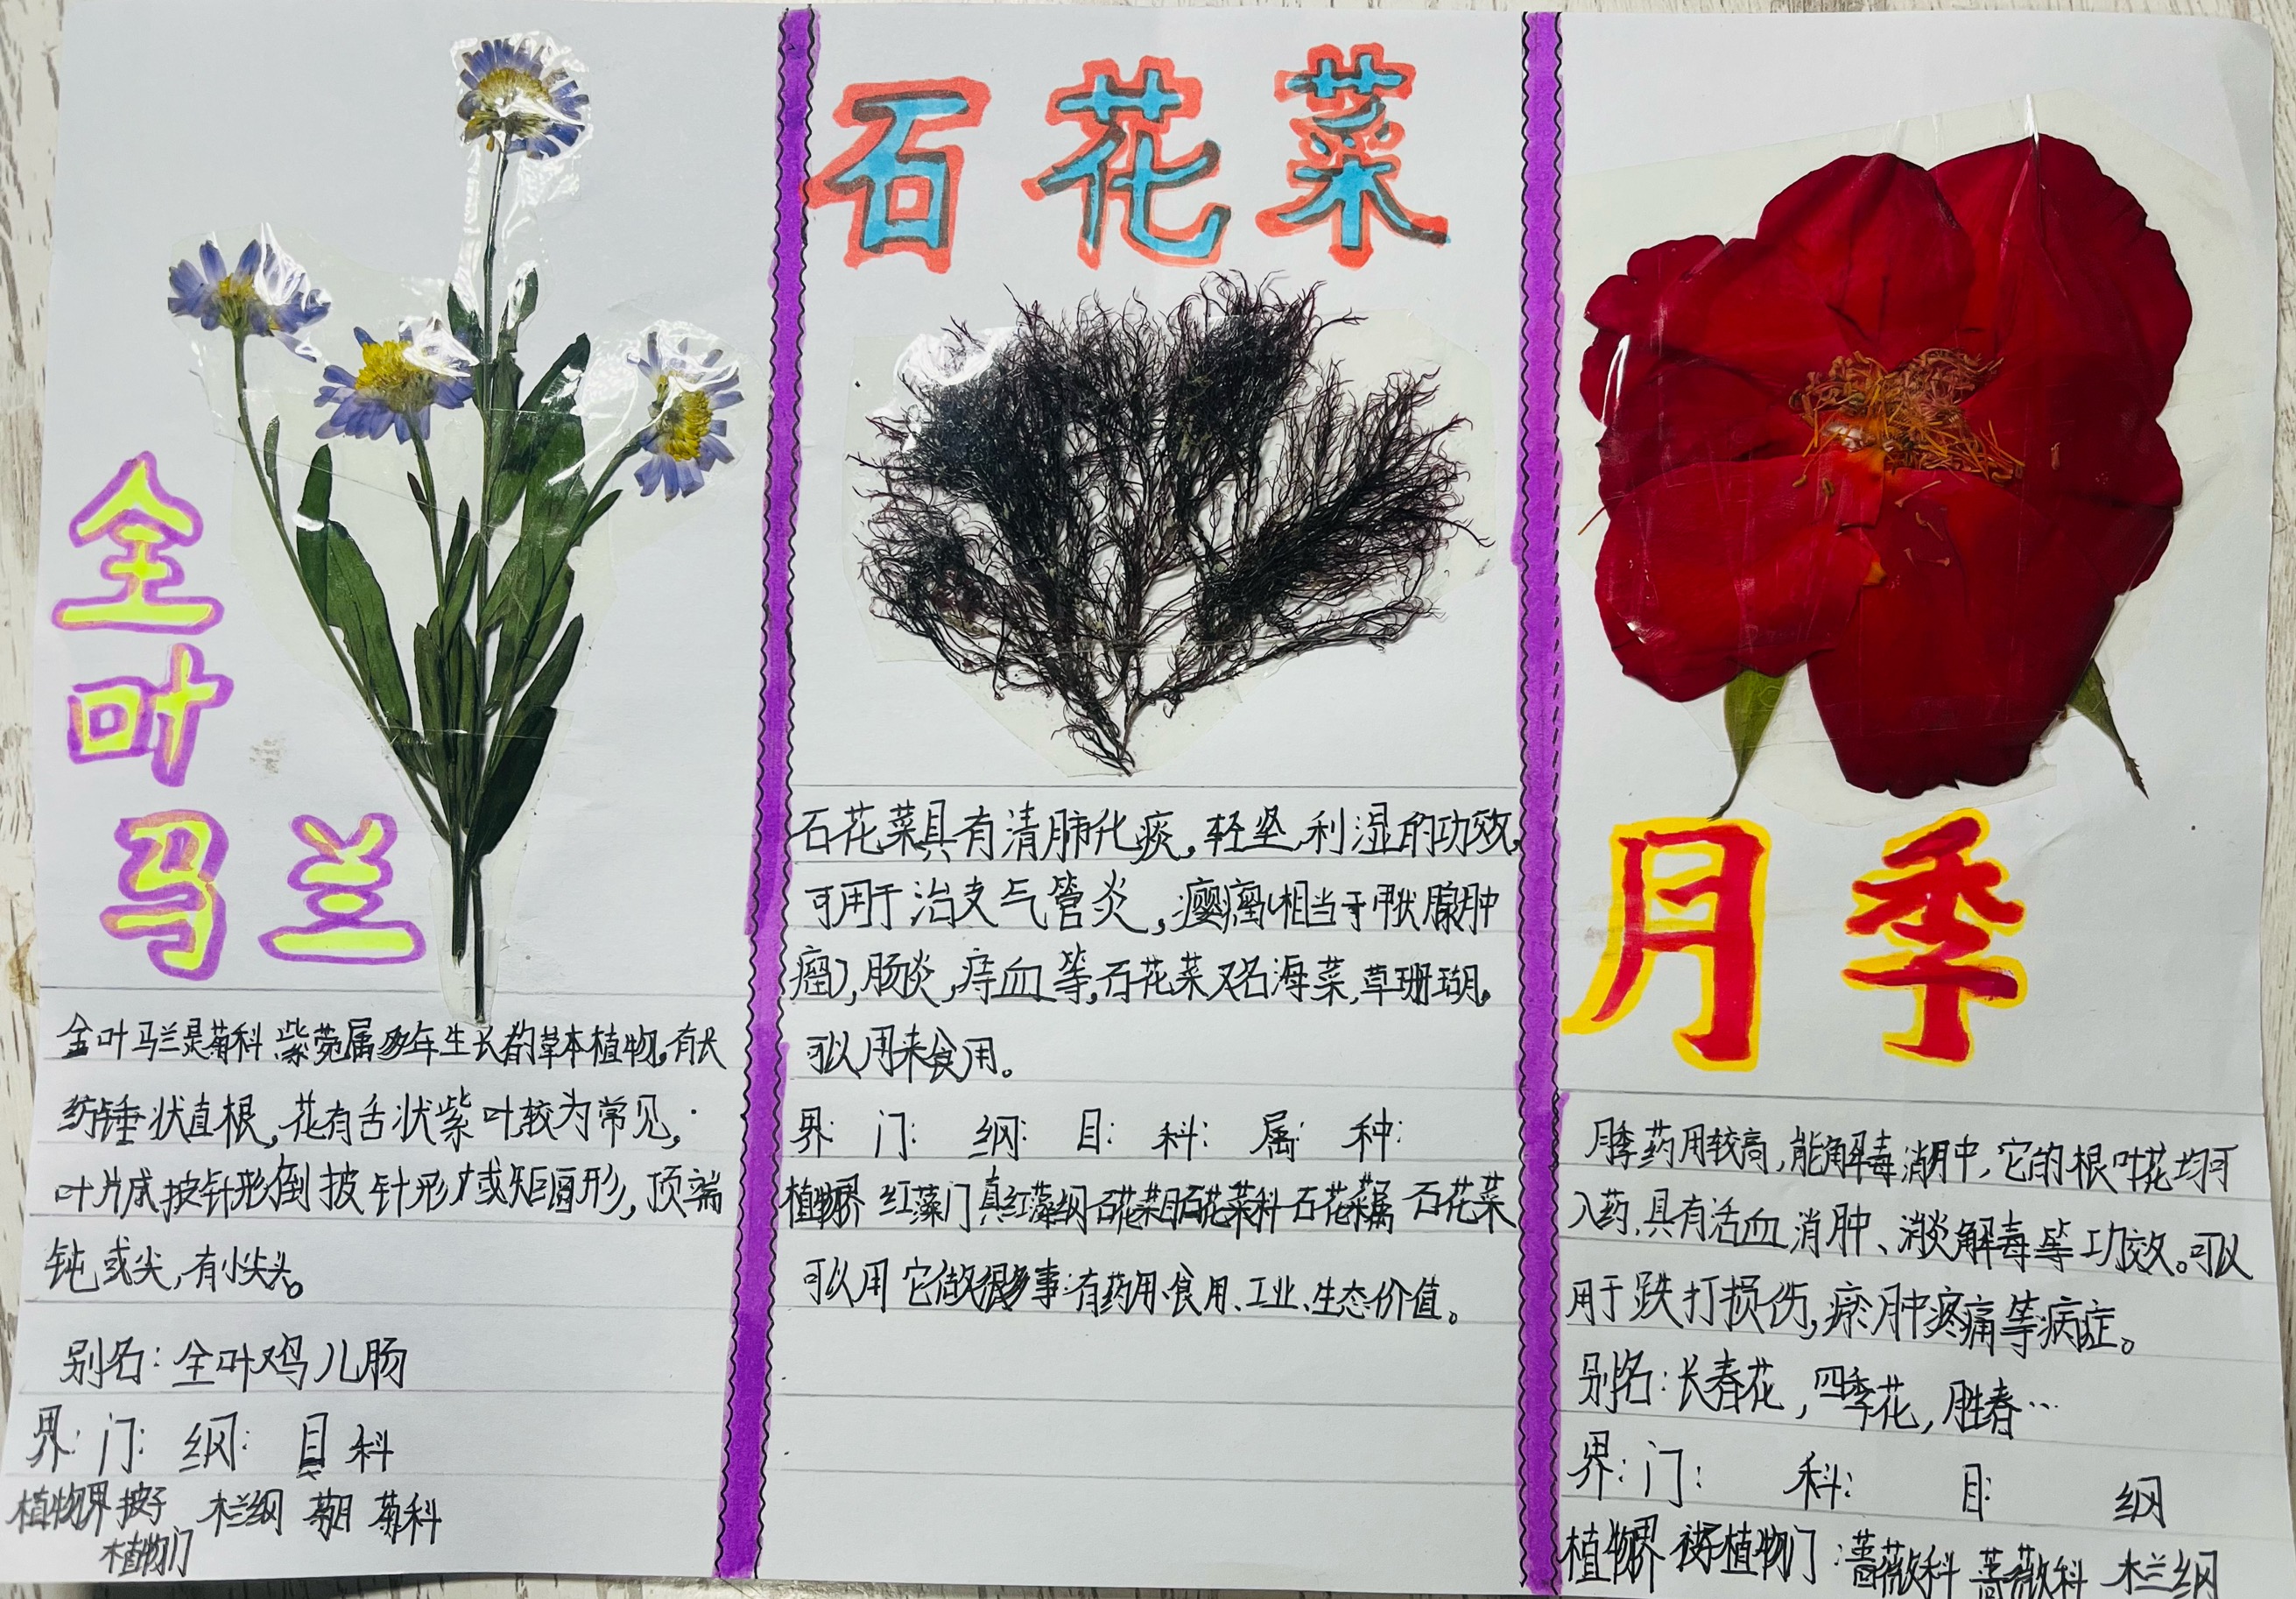 全叶
马兰
全叶马兰是菊科 紫菀属多年生长的草本植物,有长
纺锤状直根,花有舌状紫叶较为常见,
叶片成披针形倒披针形或矩圆形,顶端
钝或尖,有小尖头。
别名:全叶鸡儿肠
界: 门: 纲: 目 科
植物界 按子 木兰纲 菊目 菊科
植物门
石花菜
石花菜具有清肺化痰,轻坚,利湿的功效,
可用于治支气管炎,瘿瘤(相当于甲状腺肿
瘤),肠炎,痔血等,石花菜又名海菜,草珊瑚。
可以用来食用。
界: 门: 纲: 目: 科: 属: 种:
植物界 红藻门 真红藻纲 石花菜目 石花菜科 石花菜属 石花菜
可以用它做很多事:有药用、食用、工业、生态价值。
月季
月季药用较高,能解毒消肿,它的根叶花均可
入药,具有活血消肿、消炎解毒等功效。可以
用于跌打损伤,瘀肿疼痛等病症。
别名:长春花,四季花,胜春…
界: 门: 科: 目: 纲
植物界 植物门:蔷薇科 蔷薇科 木兰纲